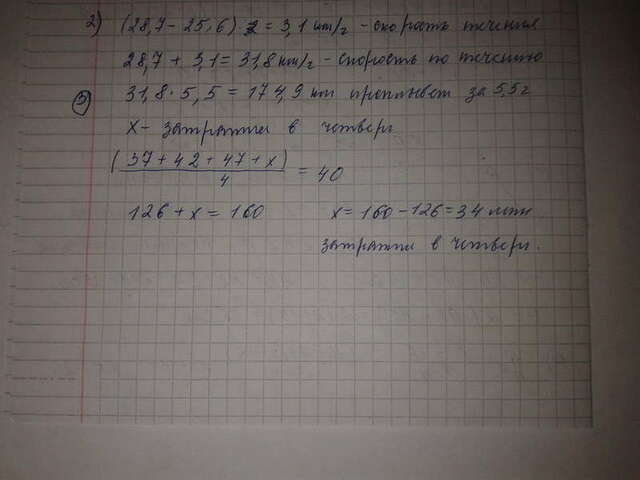 2) (28,7 - 25,6) = 3,1 km/г - скорость течения
28,7 + 3,1 = 31,8 km/г - скорость по течению
31,8 · 5,5 = 174,9 km проплывет за 5,5 г
3)
X - затратил в четверг
(37 + 42 + 47 + x)
4
= 40
126 + x = 160
x = 160 - 126 = 34 мин
затратил в четверг.